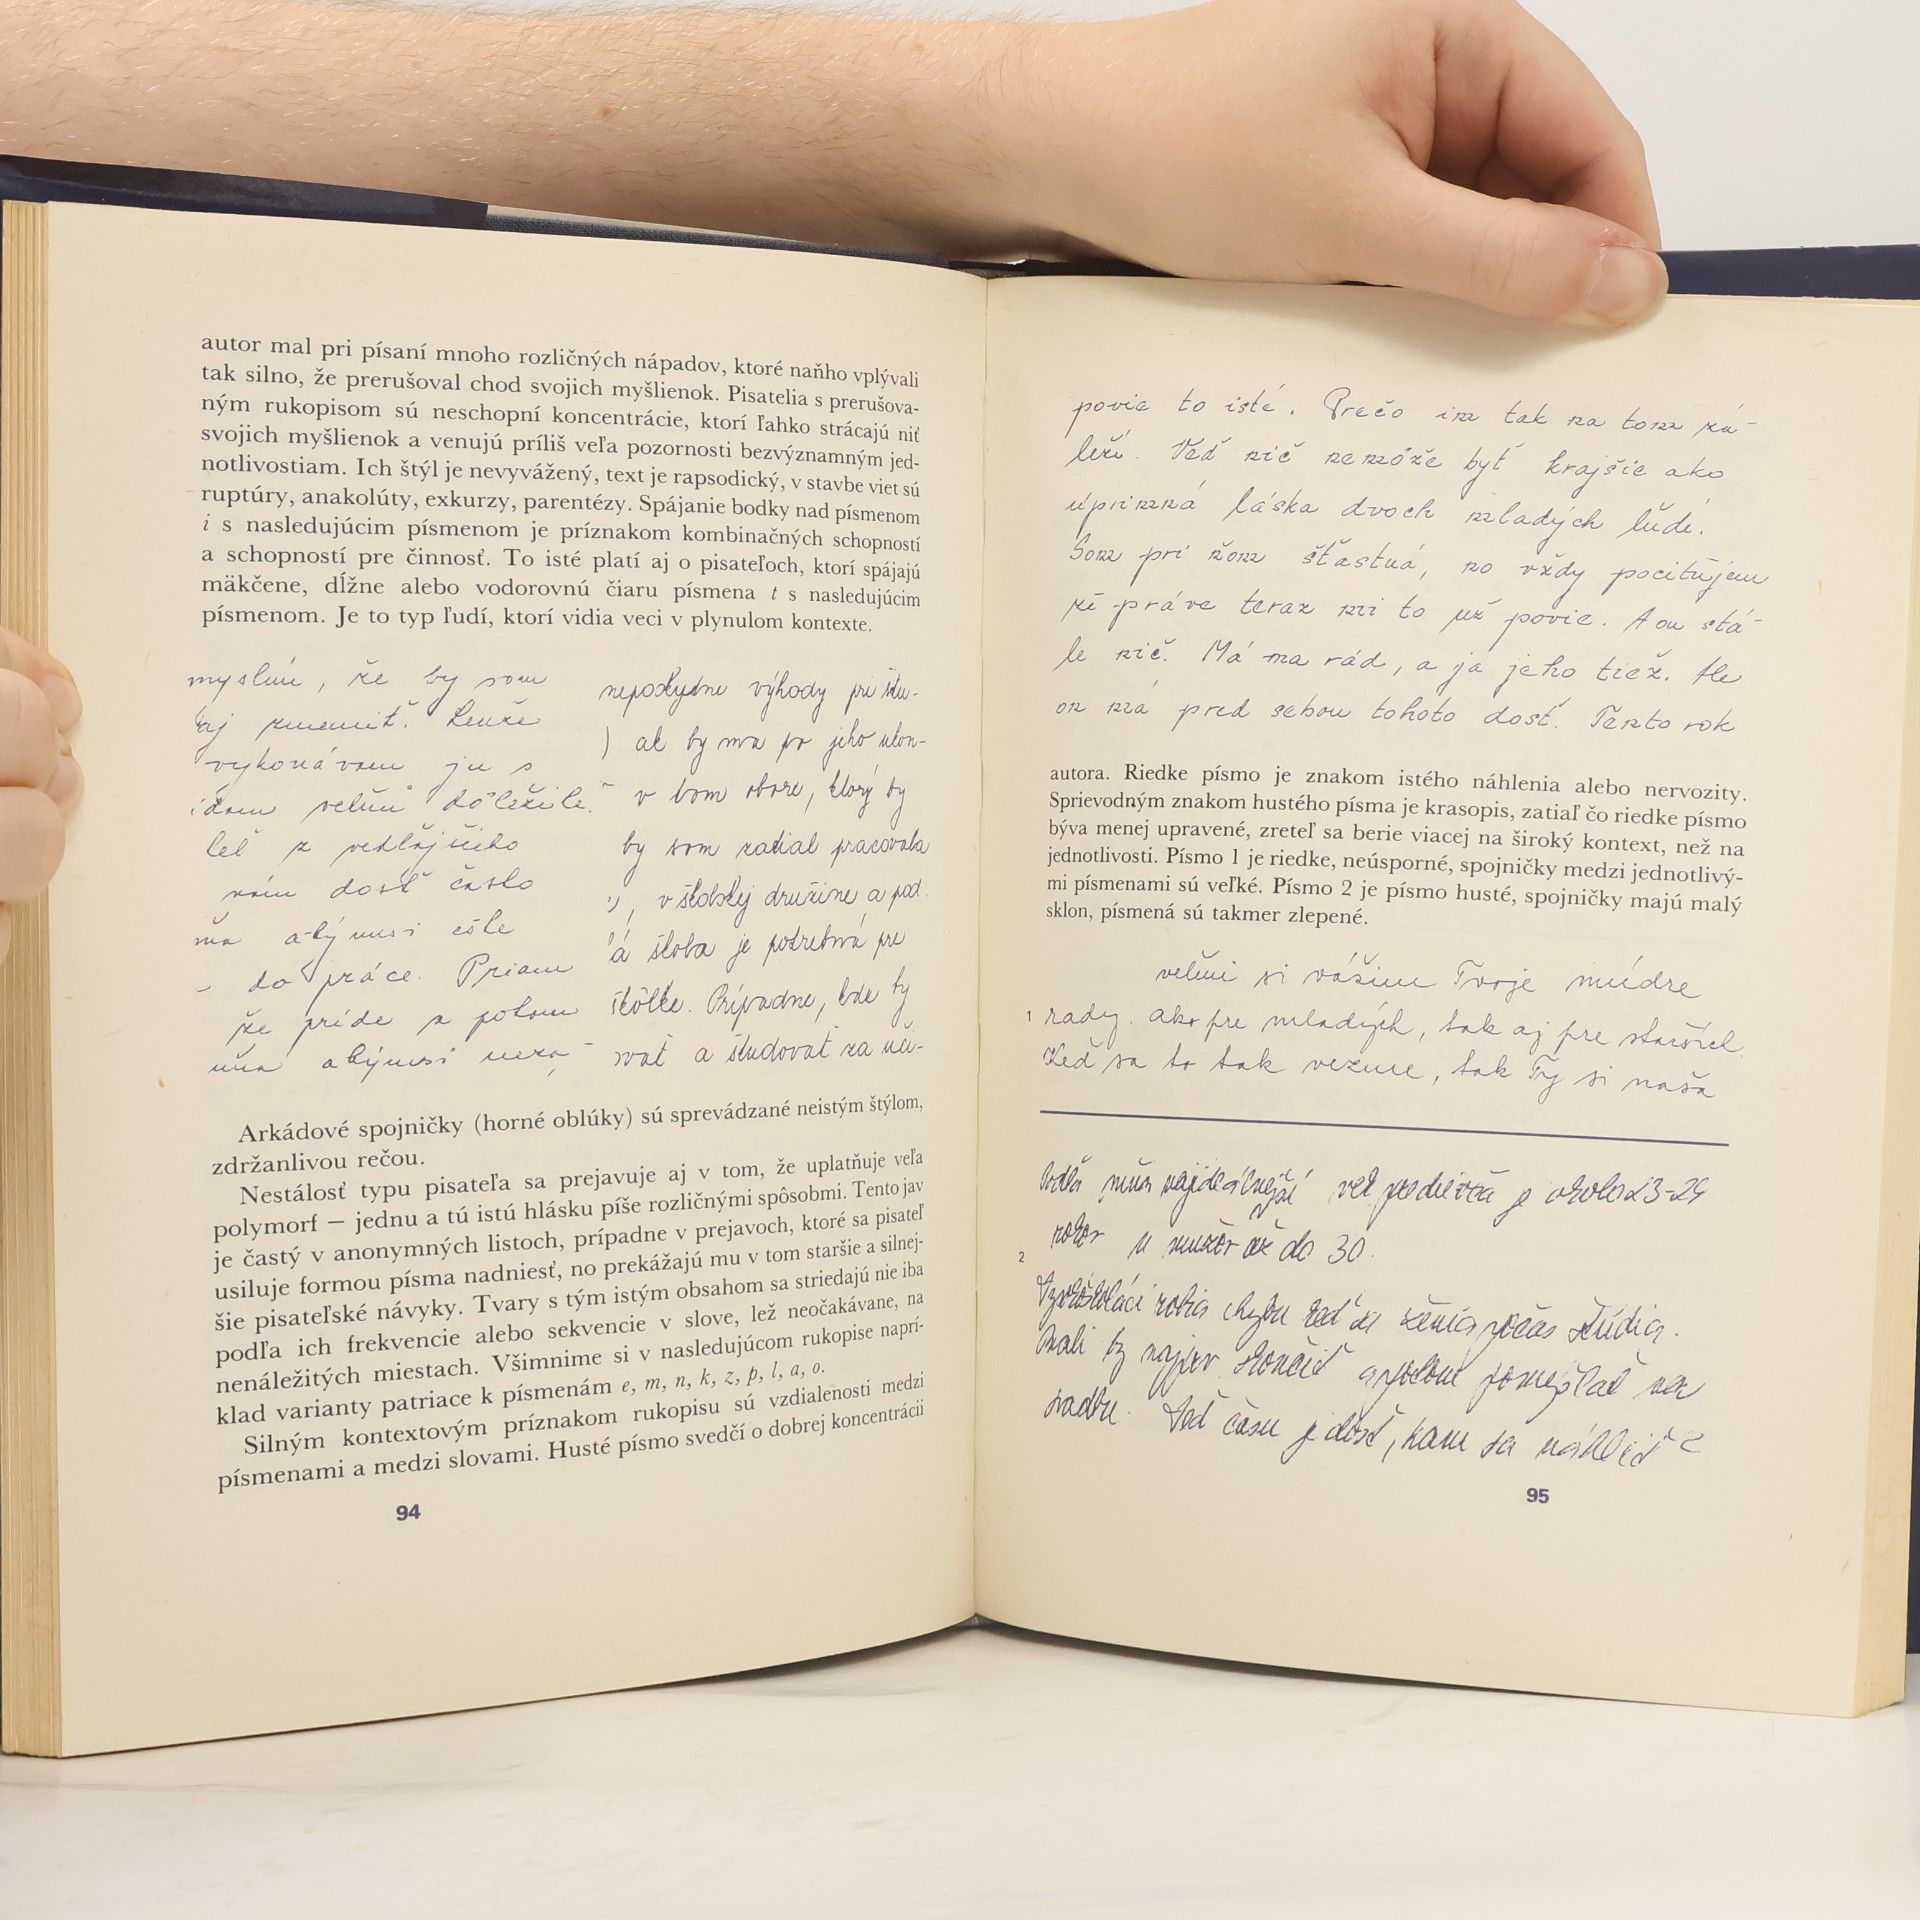 autor mal pri písaní mnoho rozličných nápadov, ktoré naňho vplývali
tak silno, že prerušoval chod svojich myšlienok. Pisatelia s prerušova-
ným rukopisom sú neschopní koncentrácie, ktorí ľahko strácajú niť
svojich myšlienok a venujú príliš veľa pozornosti bezvýznamným jed-
notlivostiam. Ich štýl je nevyvážený, text je rapsodický, v stavbe viet sú
ruptúry, anakolúty, exkurzy, parentézy. Spájanie bodky nad písmenom
i s nasledujúcim písmenom je príznakom kombinačných schopností
a schopností pre činnosť. To isté platí aj o pisateľoch, ktorí spájajú
mäkčene, dĺžne alebo vodorovnú čiaru písmena t s nasledujúcim
písmenom. Je to typ ľudí, ktorí vidia veci v plynulom kontexte.
myslím, že by som
aj zmeniť. Lenže
vykonávam ju s
veľmi dôležite.
leš z vedľajšieho
nám dosť často
ma aby musí ešte
do práce. Priam
že príde z potom
mňa aby musí neza-
neposkytne výhody pri štu-
ak by ma po jeho ukon-
v tom obore, ktorý by
by som radial pracovala
v školskej družine a pod.
á škola je potrebná pre
škôlke. Prípadne, kde by
svať a študovať za uči-
Arkádové spojničky (horné oblúky) sú sprevádzané neistým štýlom,
zdržanlivou rečou.
Nestálosť typu pisateľa sa prejavuje aj v tom, že uplatňuje veľa
polymorf — jednu a tú istú hlásku píše rozličnými spôsobmi. Tento jav
je častý v anonymných listoch, prípadne v prejavoch, ktoré sa pisateľ
usiluje formou písma nadniesť, no prekážajú mu v tom staršie a silnej-
šie pisateľské návyky. Tvary s tým istým obsahom sa striedajú nie iba
podľa ich frekvencie alebo sekvencie v slove, lež neočakávane, na
nenáležitých miestach. Všimnime si v nasledujúcom rukopise naprí-
klad varianty patriace k písmenám e, m, n, k, z, p, l, a, o.
Silným kontextovým príznakom rukopisu sú vzdialenosti medzi
písmenami a medzi slovami. Husté písmo svedčí o dobrej koncentrácii
94
povie to isté. Prečo im tak na tom zá-
leží. Veď nič nemôže byť krajšie ako
úprimná láska dvoch mladých ľudí.
Som pri ňom šťastná, no vždy pociťujem
že práve teraz mi to už povie. A on stá-
le nič. Má ma rád, a ja jeho tiež. Ale
on má pred sebou tohoto dosť. Tento rok
autora. Riedke písmo je znakom istého náhlenia alebo nervozity.
Sprievodným znakom hustého písma je krasopis, zatiaľ čo riedke písmo
býva menej upravené, zreteľ sa berie viacej na široký kontext, než na
jednotlivosti. Písmo 1 je riedke, neúsporné, spojničky medzi jednotlivý-
mi písmenami sú veľké. Písmo 2 je písmo husté, spojničky majú malý
sklon, písmená sú takmer zlepené.
veľmi si vážim Tvoje múdre
1 rady. ako pre mladých, tak aj pre starších.
Keď sa to tak vezme, tak Ty si naša
Podľa mňa najideálnejší vek pre dievča je okolo 23-24
2 rokov u mužov až do 30.
Vysokoškoláci robia chybu keď sa ženia počas štúdia.
Mali by najprv skončiť a potom pomýšľať na
svadbu. Veď času je dosť, kam sa náhliť?
95